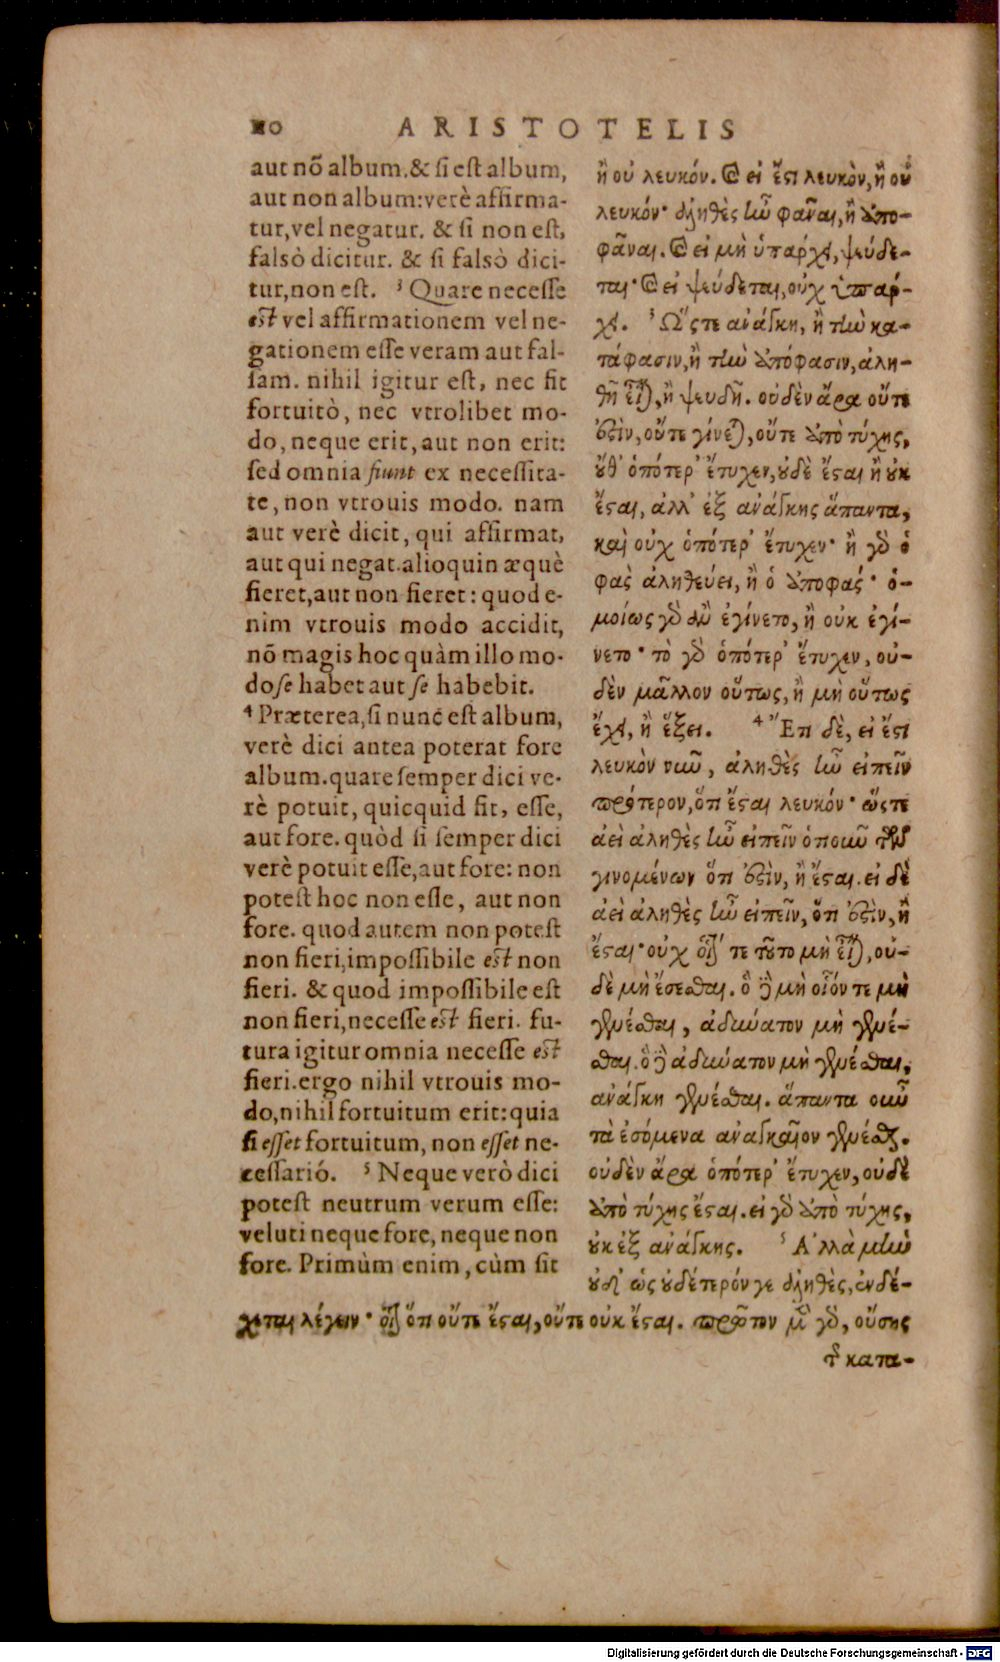 110 ARISTOTELIS
aut nõ album.& si est album,
aut non album:verè affirma-
tur,vel negatur. & si non est,
falsò dicitur. & si falsò dici-
tur,non est. ³ Quare necesse
est vel affirmationem vel ne-
gationem esse veram aut fal-
sam. nihil igitur est, nec fit
fortuitò, nec vtrolibet mo-
do, neque erit, aut non erit:
sed omnia fiunt ex necessita-
te, non vtrouis modo. nam
aut verè dicit, qui affirmat,
aut qui negat.alioquin æquè
fieret,aut non fieret: quod e-
nim vtrouis modo accidit,
nõ magis hoc quàm illo mo-
do se habet aut se habebit.
⁴ Præterea,si nunc est album,
verè dici antea poterat fore
album.quare semper dici ve-
rè potuit, quicquid fit, esse,
aut fore. quòd si semper dici
verè potuit esse,aut fore: non
potest hoc non esse, aut non
fore. quod autem non potest
non fieri,impossibile est non
fieri. & quod impossibile est
non fieri,necesse est fieri. fu-
tura igitur omnia necesse est
fieri.ergo nihil vtrouis mo-
do,nihil fortuitum erit:quia
si esset fortuitum, non esset ne-
cessarió. ⁵ Neque verò dici
potest neutrum verum esse:
veluti neque fore, neque non
fore. Primùm enim, cùm sit
ἢ οὐ λευκόν. Καὶ εἰ ἔστι λευκὸν, ἢ οὐ
λευκόν· ἀληθὲς ἦν φᾶναι, ἢ ἀπο-
φᾶναι. Καὶ εἰ μὴ ὑπάρχει, ψεύδε-
ται· Καὶ εἰ ψεύδεται, οὐχ ὑπάρ-
χει. ³ Ὥστε ἀνάγκη, ἢ τὴν κα-
τάφασιν, ἢ τὴν ἀπόφασιν, ἀλη-
θῆ εἶναι, ἢ ψευδῆ. οὐδὲν ἄρα οὔτε
ἐστὶν, οὔτε γίνεται, οὔτε ἀπὸ τύχης,
οὔθ' ὁπότερ' ἔτυχεν, οὐδὲ ἔσται ἢ οὐκ
ἔσται, ἀλλ' ἐξ ἀνάγκης ἅπαντα,
καὶ οὐχ ὁπότερ' ἔτυχεν· ἢ γὰρ ὁ
φὰς ἀληθεύει, ἢ ὁ ἀποφάς· ὁ-
μοίως γὰρ ἂν ἐγίνετο, ἢ οὐκ ἐγί-
νετο· τὸ γὰρ ὁπότερ' ἔτυχεν, οὐ-
δὲν μᾶλλον οὕτως, ἢ μὴ οὕτως
ἔχει, ἢ ἕξει. ⁴ Ἔτι δὲ, εἰ ἔστι
λευκὸν νῦν, ἀληθὲς ἦν εἰπεῖν
πρότερον, ὅτι ἔσται λευκόν· ὥστε
ἀεὶ ἀληθὲς ἦν εἰπεῖν ὁποιοῦν τῶν
γινομένων ὅτι ἐστὶν, ἢ ἔσται. εἰ δὲ
ἀεὶ ἀληθὲς ἦν εἰπεῖν, ὅτι ἐστὶν, ἢ
ἔσται· οὐχ οἷόν τε τοῦτο μὴ εἶναι, οὐ-
δὲ μὴ ἔσεσθαι. ὃ δὲ μὴ οἷόν τε μὴ
γενέσθαι, ἀδύνατον μὴ γενέ-
σθαι. ὃ δὲ ἀδύνατον μὴ γενέσθαι,
ἀνάγκη γενέσθαι. ἅπαντα οὖν
τὰ ἐσόμενα ἀναγκαῖον γενέσθαι.
οὐδὲν ἄρα ὁπότερ' ἔτυχεν, οὐδὲ
ἀπὸ τύχης ἔσται. εἰ γὰρ ἀπὸ τύχης,
οὐκ ἐξ ἀνάγκης. ⁵ Ἀλλὰ μὴν
οὐδ' ὡς οὐδέτερόν γε ἀληθὲς, ἐνδέ-
χεται λέγειν· οἷον ὅτι οὔτε ἔσται, οὔτε οὐκ ἔσται. πρῶτον μὲν γὰρ, οὔσης
τῆς κατα-
Digitalisierung gefördert durch die Deutsche Forschungsgemeinschaft - DFG